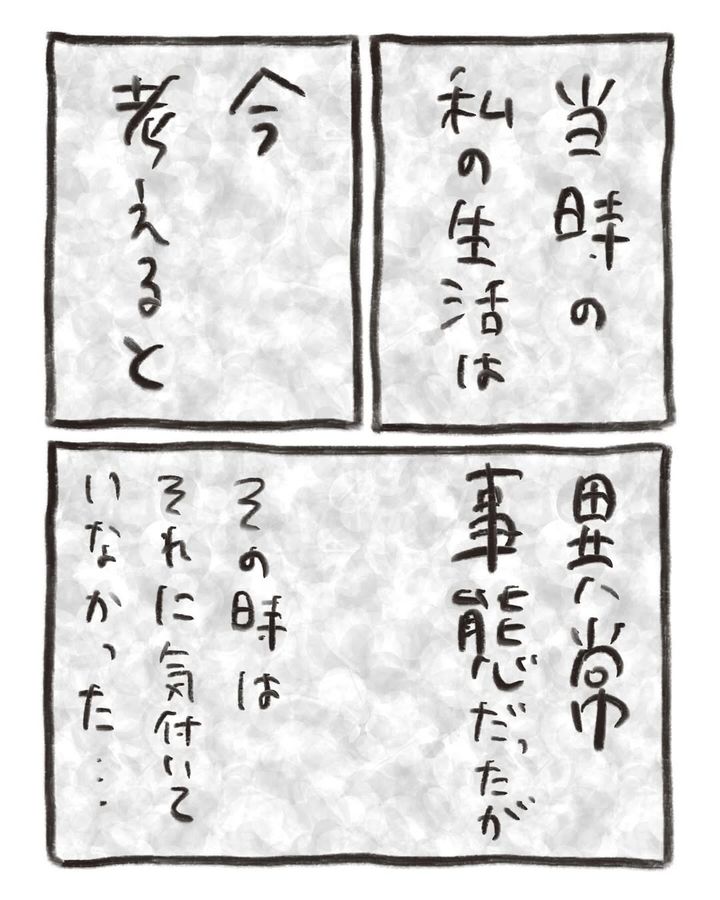 当時の
私の生活は
今
考えると
異常
事態だったが
その時は
それに気付いて
いなかった…